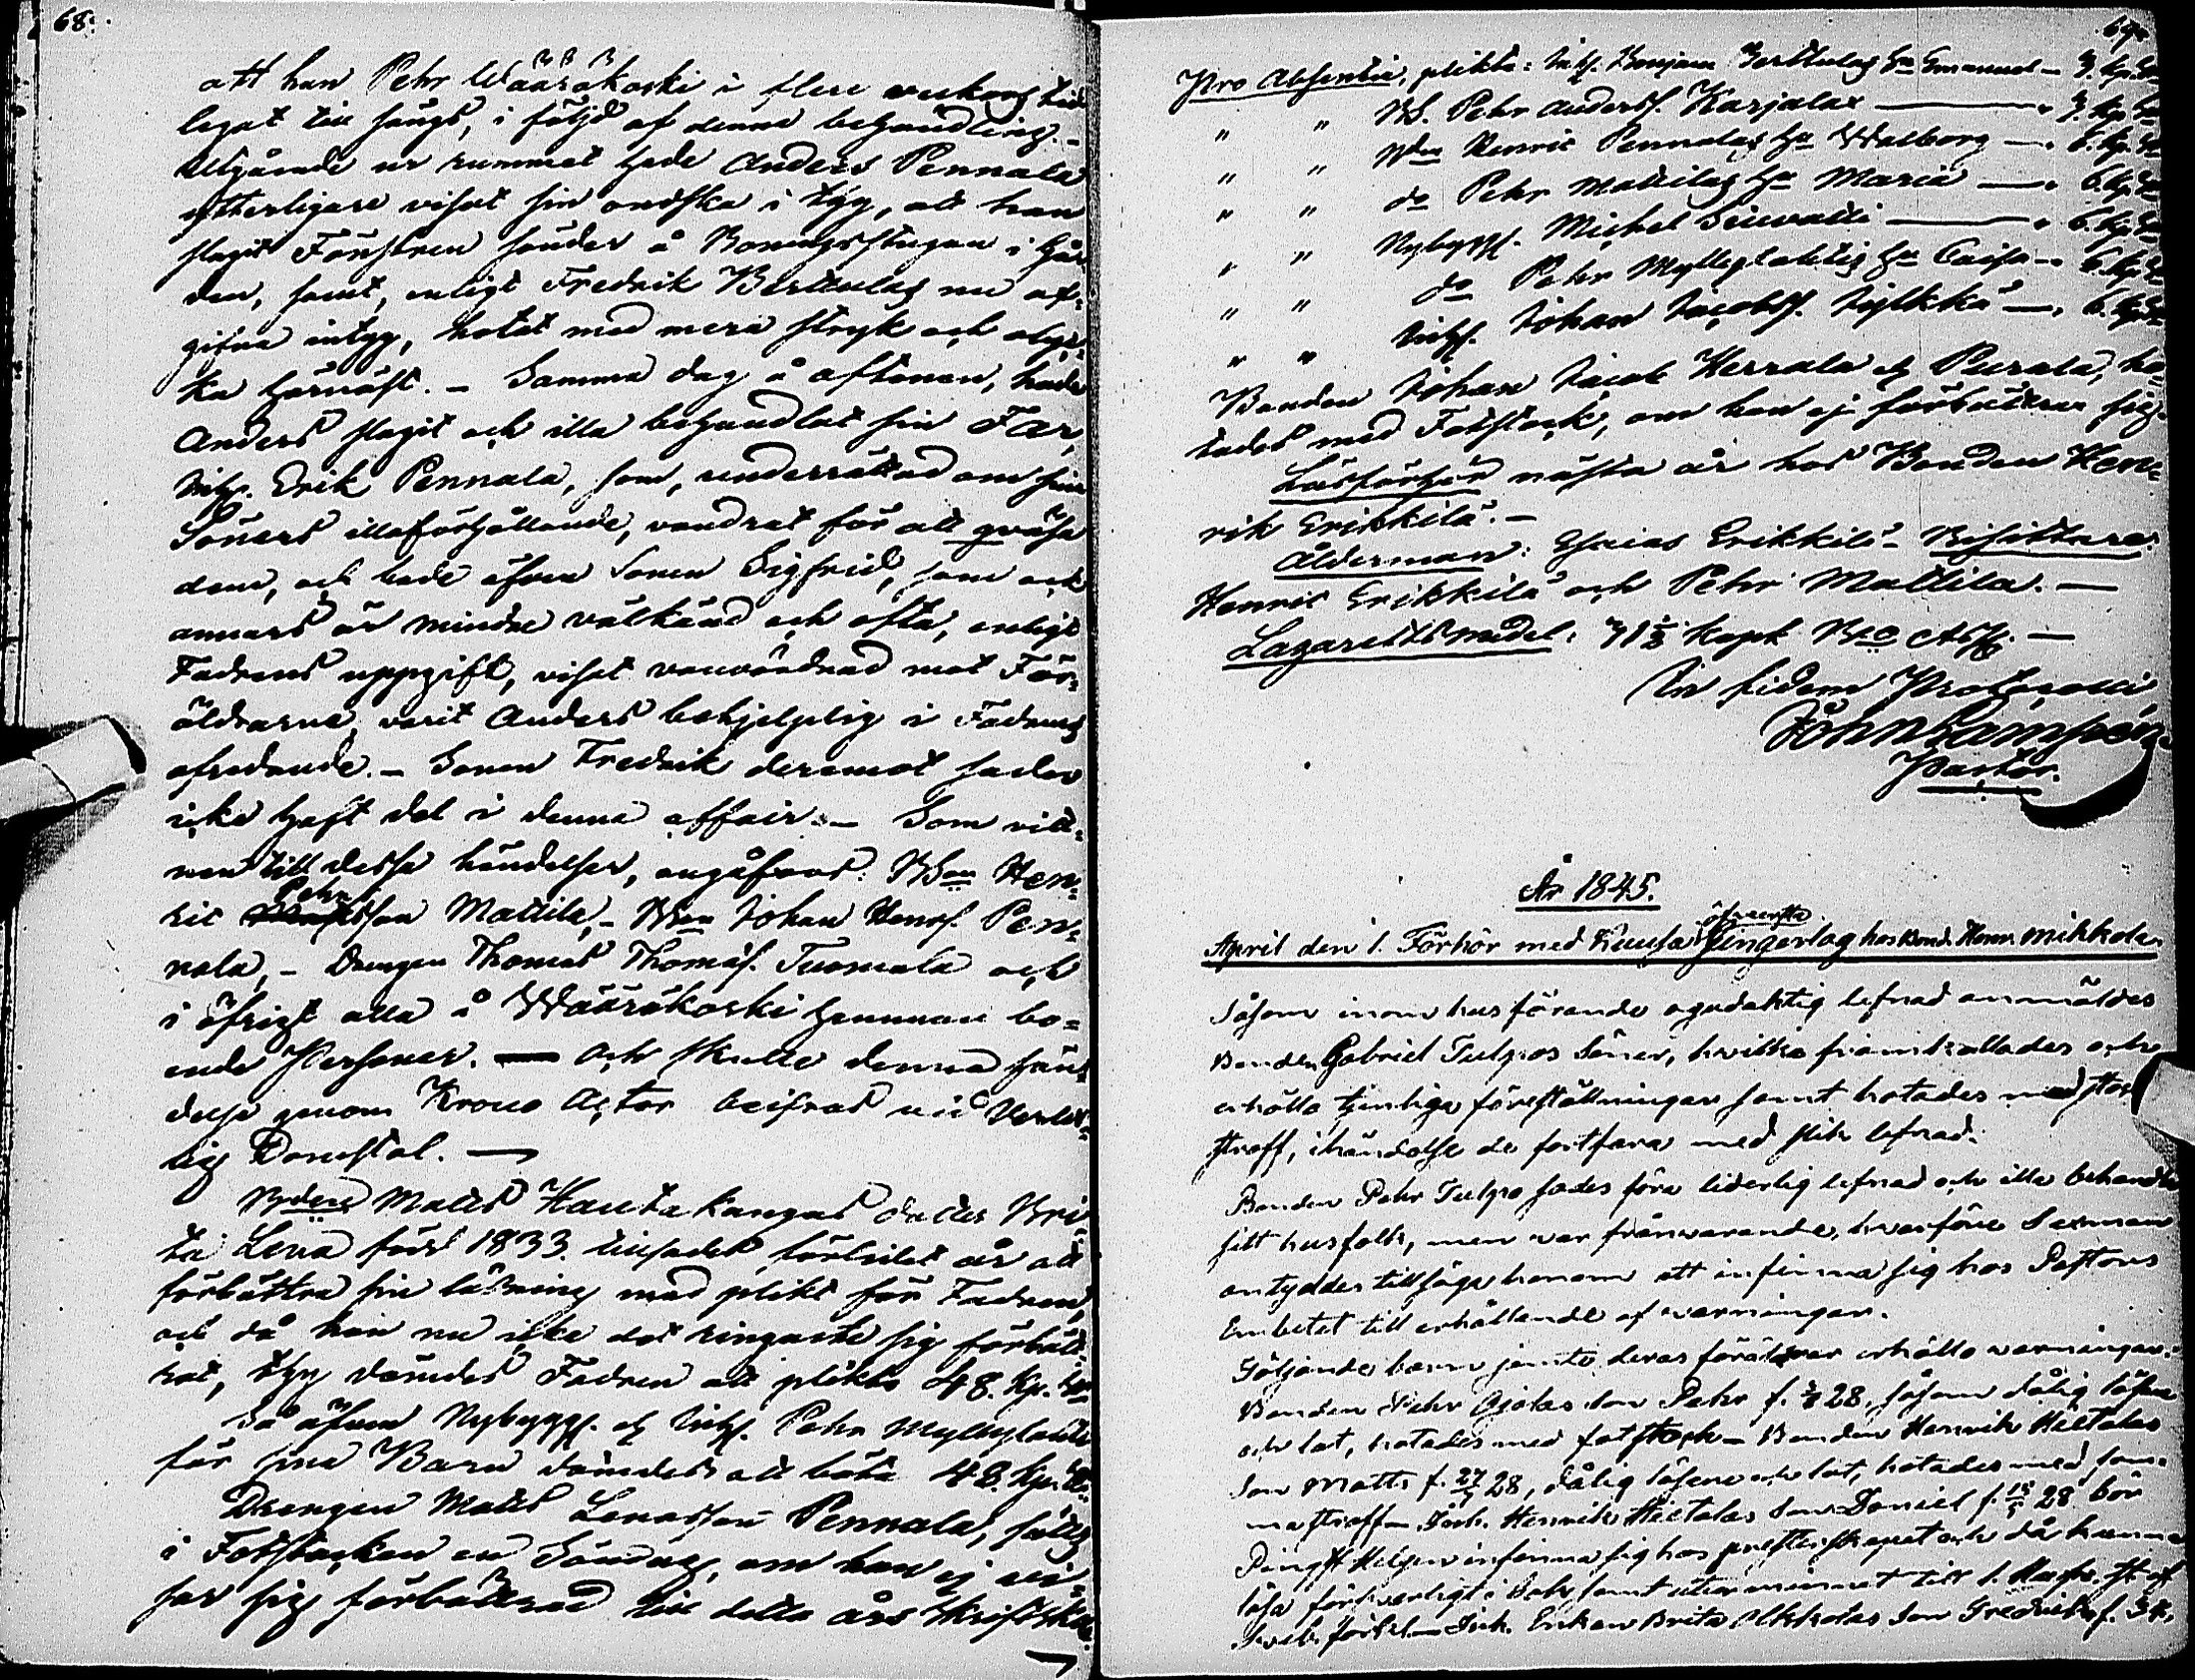 68.
att han Pehr Wääräkoski i flere veckors tid
legat till sängs, i följd af denna behandling. -
Utgående ur rummet hade Anders Pennala
ytterligare visat sin ondska i thy, att han
slagit Fönstren sönder å Boningsstugan i går-
den, samt, enligt Fredrik Berttulas nu af-
gifna intyg, hotat med mera stryk och olyc-
ka härnäst. - Samma dag å aftonen, hade
Anders slagit och illa behandlat sin Far,
Inhs. Erik Pennala, som, underrättad om sine
Söners illaförhållande, vandrat för att
dem, och hade äfven Sonen Sigfrid, som ock
annars är mindre välkänd och ofta, enligt
Fadrens uppgift, visat vanvördnad mot För-
äldrarne, varit Anders behjelplig i Fadrens
- Sonen Fredrik deremot sades
icke haft del i denna affair. - Som vitt-
nen till dessa händelser, angåfvos: Bon Hen-
ric Pehrsson Mattila, - Bon Johan Henrs. Pen-
nala, - Drengen Thomas Thomæs. Tuomala och
i öfrigt alla å Wääräkoski hemman bo-
ende Personer. — Och skulle denna hän-
delse genom Krono Actor beifras vid Verlds-
lig Domstol. —
Bondens Matts Hautakangas dotter Bri-
ta Lena född 1833. tillsades förledet år att
förbättra sin läsning med plikt för Fadren,
och då hon nu icke det ringaste sig förbätt-
rat, thy dömdes Fadren att plikta 48. Kp. Sr
Så äfven Nybyggs. och Inhs. Pehr Myllylahti
för sina Barn dömdes att böta 48. Kp. Sr
Drengen Matts Lenasson Pennala, sättes
i Fotstocken en Söndag, om han ej vi-
sar sig förbättrad till detta års Skriftskola.
69.
Pro Absentia, plikta: Inhs. Benjam Berttulas hu Emanuel - 3. kp. Sr
" " Bd. Pehr Anderss. Karjalax — 3. kp. Sr
" " Bdn Henric Pennalas hu Walborg — 6. kp. Sr
" " do Pehr Mattilas hu Maria — 6. kp. Sr
" " Nybyggs. Michel — 6. kp. Sr
" " do Pehr Myllylahtis hu Caisa - 6. kp. Sr
" " Inhs. Johan Jacobss. Jylkkä —. 6. kp. Sr
Bonden Johan Jacob Herrala Purala, ho-
tades med Fotstock, om han ej förbättrar sig.
Läsförhör nästa år hos Bonden Hen-
rik Erikkilä. -
Ålderman: Esaias Erikkilä - Bisittare:
Henric Erikkilä och Pehr Mattila. —
Lazarettsmedel: 71 ½ Kopk Bco Ass. —
In fidem Protocolli
John Lamprén
Pastor.
År 1845.
April den 1. Förhör med Kausa öfversta Bingerlag hos Bond. Henr Mikkola.
Såsom inom hus förande ogudaktig lefnad anmäldes
Bonden Gabriel Tulpos Söner, hvilka framkallades och
erhöllo tjenliga föreställningar samt hotades med stock
straff, ihändelse de fortfara med slik lefnad.
Bonden Pehr Tulpo sades föra liderlig lefnad och illa behandla
sitt husfolk, men var frånvarande, hvarföre Sexman
antyddes tillsäga honom att infinna sig hos Pastors
Embetet till erhållande af varningar.
Följande barn jemte deras föräldrar erhöllo varningar:
Bonden Pehr Ojalas Son Pehr f. 28, såsom dålig läsare
och lat, hotades med fotstock - Bonden Henrik Hietalas
Son Matts f. 28, dålig läsare och lat, hotades med sam-
ma straff - Inh. Henrik Hietalas Son Daniel f. 28 bör
Pingst Helgen infinna sig hos presterskapet och då kunna
läsa försvarligt i bok, samt utur minnet till 1. Hufv. st. af
förkl. - Inh. Enkan Brita Ukkolas Son Fredrik f. 34,